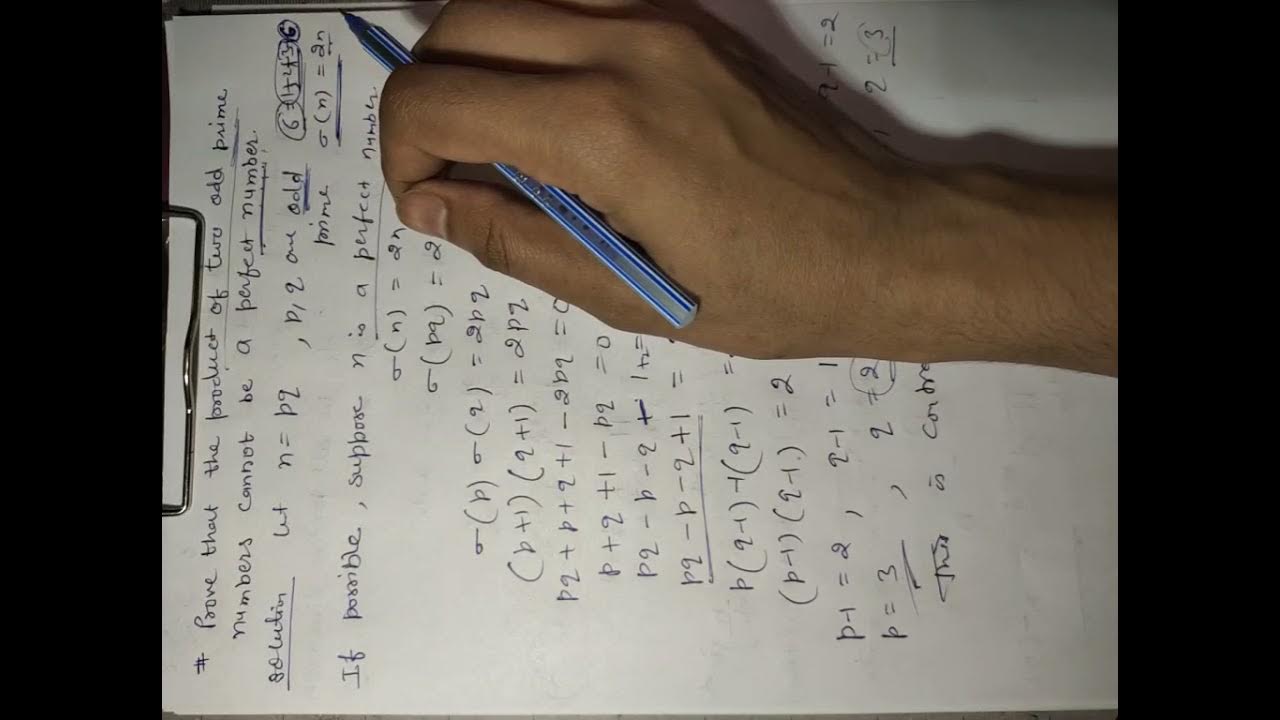 # Prove that the product of two odd prime
numbers cannot be a perfect number.
Solution let n = pq , p, q are odd prime
6 = 1+2+3
σ(n) = 2n
If possible, suppose n is a perfect number.
σ(n) = 2n
σ(pq) = 2
σ(p) σ(q) = 2pq
(p+1) (q+1) = 2pq
pq + p + q + 1 - 2pq = 0
p + q + 1 - pq = 0
pq - p - q + 1
pq - p - q + 1 =
p(q-1) -1(q-1) =
(p-1) (q-1) = 2
p-1 = 2 , q-1 = 1 q-1 = 2
p = 3 , q = 2 , q = 3
This is contra